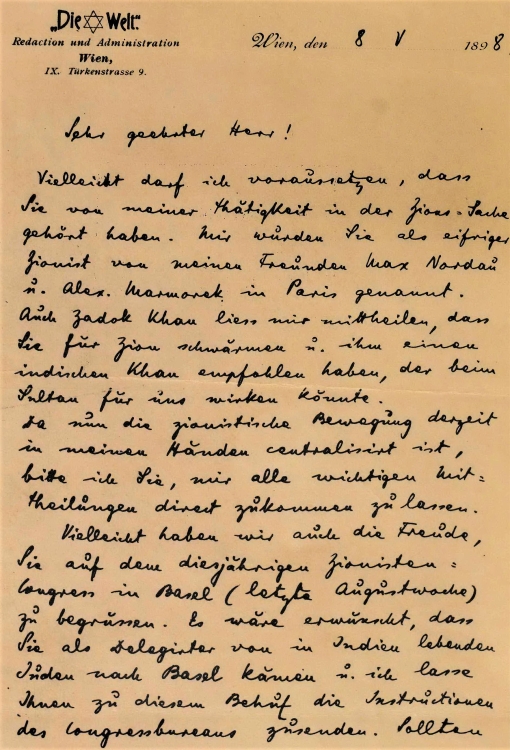 „Die Welt“
Redaction und Administration
Wien,
IX. Türkenstrasse 9.
Wien, den 8 V 1898
Sehr geehrter Herr!
Vielleicht darf ich voraussetzen, dass
Sie von meiner Thätigkeit in der Zions=Sache
gehört haben. Mir wurden Sie als eifriger
Zionist von meinen Freunden Max Nordau
u. Alex. Marmorek in Paris genannt.
Auch Zadok Khan liess mir mittheilen, dass
Sie für Zion schwärmen u. ihm einen
indischen Khan empfohlen haben, der beim
Sultan für uns wirken könnte.
Da nun die zionistische Bewegung derzeit
in meinen Händen centralisirt ist,
bitte ich Sie, mir alle wichtigen Mit=
theilungen direct zukommen zu lassen.
Vielleicht haben wir auch die Freude,
Sie auf dem diesjährigen Zionisten=
Congress in Basel (letzte Augustwoche)
zu begrüssen. Es wäre erwünscht, dass
Sie als Delegirter von in Indien lebenden
Juden nach Basel kämen u. ich lasse
Ihnen zu diesem Behuf die Instructionen
des Congressbureaus zusenden. Sollten